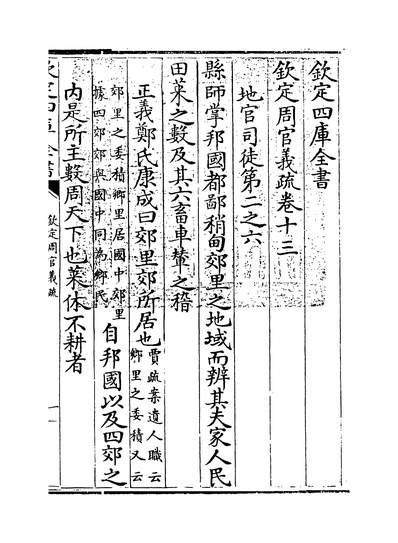 欽定四庫全書
欽定周官義疏卷十三
地官司徒第二之六
縣師掌邦國都鄙稍甸郊里之地域而辨其夫家人民
田萊之數及其六畜車輦之稽
正義鄭氏康成曰郊里郊所居也
賈疏案遺人職云
鄉里之委積又云
郊里之委積鄉里居國中郊里
據四郊郊與國中同為鄉民
自邦國以及四郊之
內是所主數周天下也萊休不耕者
欽定四庫全書
欽定周官義疏
一